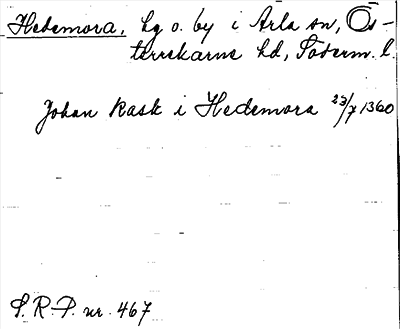 Hedemora, hg o. by i Arla sn, Ös-
terrekarne hd, Söderm. l.
Johan Kask i Hedemora 23/7 1360
S.R.P. nr. 467